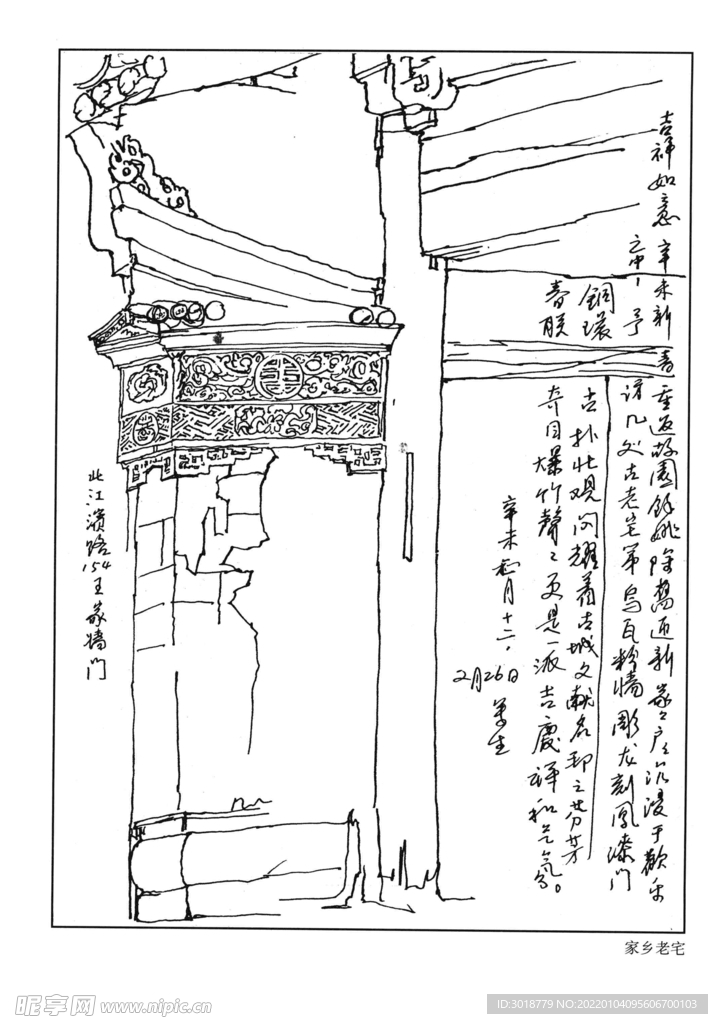 吉祥如意 辛未新春重返故园余姚除旧迎新家々户々沉浸于歡乐
之中，予访几处古老宅第乌瓦粉墙雕龙刻凤漆门
铜环古扑壮观闪耀着古城文献名邦之芬芳
春联夺目爆竹聲々更是一派吉慶祥和之气氛。
辛未正月十二，
2月26日
北江濱路154王家墙门
家乡老宅
昵享网 www.nipic.cn
ID:3018779 NO:20220104095606700103